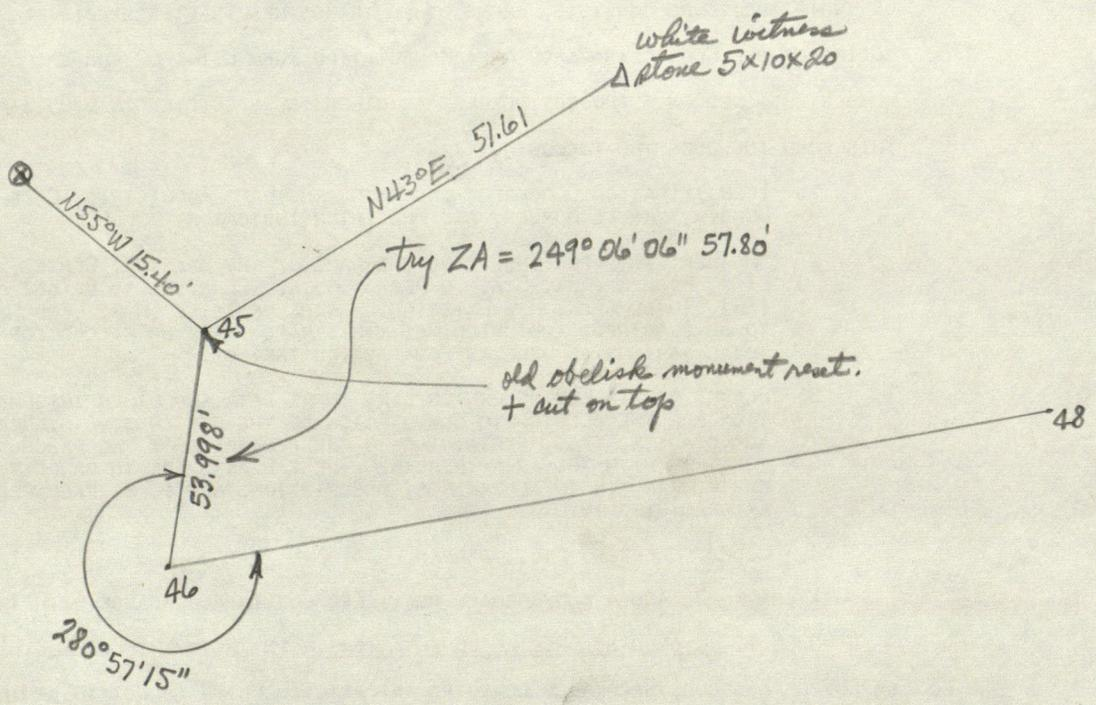 white witness
stone 5x10x20
N43°E 51.61
N55°W 15.40'
try ZA = 249° 06' 06" 57.80'
45
old obelisk monument reset.
+ cut on top
48
53.998'
46
280°57'15"